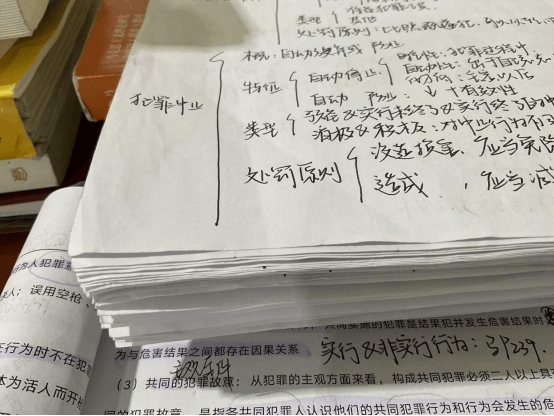 类型
处罚原则：比照既遂犯，
犯罪中止
概：自动放弃或
特征
自动停止
时间性：犯罪过程中
自动性：出于自
自动
：↓ + 有效性
类型
预备&实行未终了&实行终了
消极&积极：对中止行为
处罚原则
没造损害，应当免除
造成，应当减
行为人犯罪
人；误用空枪、
行为时不在犯
体为活人而开
共同实施的犯罪是结果犯并发生危害结果时
为与危害结果之间都存在因果关系
实行&非实行行为：339.
（3）共同的犯罪故意：从犯罪的主观方面来看，构成共同犯罪必须二人以上具
同的犯罪故意，是指各共同犯罪人认识他们的共同犯罪行为和行为会发生的危